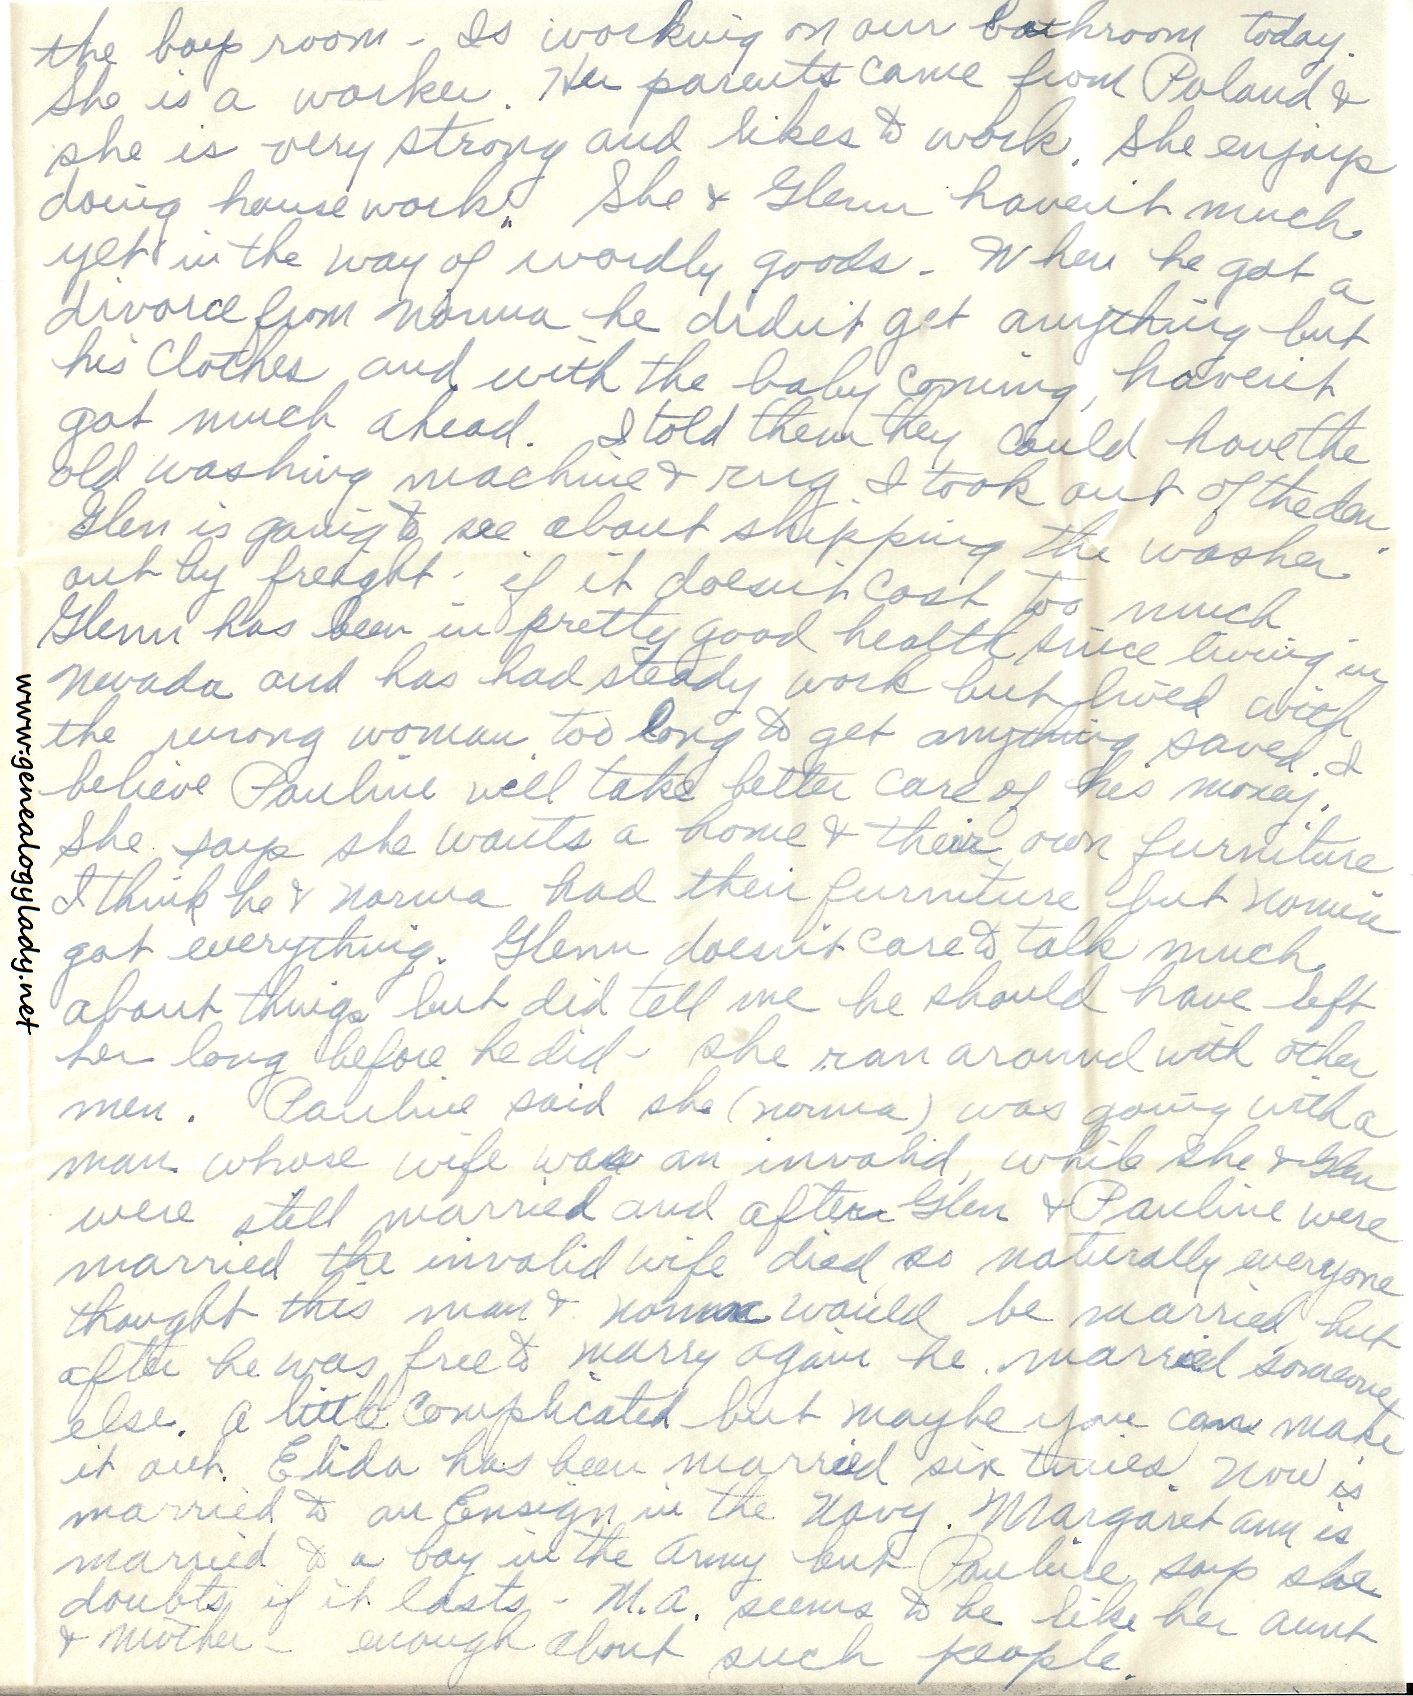 the boys room - Is working on our bathroom today.
She is a worker. Her parents came from Poland &
she is very strong and likes to work. She enjoys
doing house work." She & Glenn haven't much
yet in the way of wordly goods - When he got a
divorce from Norma he didn't get anything but
his clothes and with the baby coming, haven't
got much ahead. I told them they could have the
old washing machine & rug I took out of the den.
Glen is going to see about shipping the washer
out by freight - if it doesn't cost too much
Glenn has been in pretty good health since living in
Nevada and has had steady work but lived with
the wrong woman too long to get anything saved. I
believe Pauline will take better care of his money.
She says she wants a home & their own furniture
I think he & Norma had their furniture but Norma
got everything. Glenn doesn't care to talk much
about things but did tell me he should have left
her long before he did - she ran around with other
men. Pauline said she (Norma) was going with a
man whose wife was an invalid, while she & Glen
were still married and after Glen & Pauline were
married the invalid wife died so naturally everyone
thought this man & Norma would be married but
after he was free to marry again he married someone
else. A little complicated but maybe you can make
it out. Elida has been married six times now is
married to an Ensign in the Navy. Margaret Ann is
married to a boy in the Army but Pauline says she
doubts if it lasts - M.A. seems to be like her aunt
& mother - enough about such people.
www.genealogylady.net